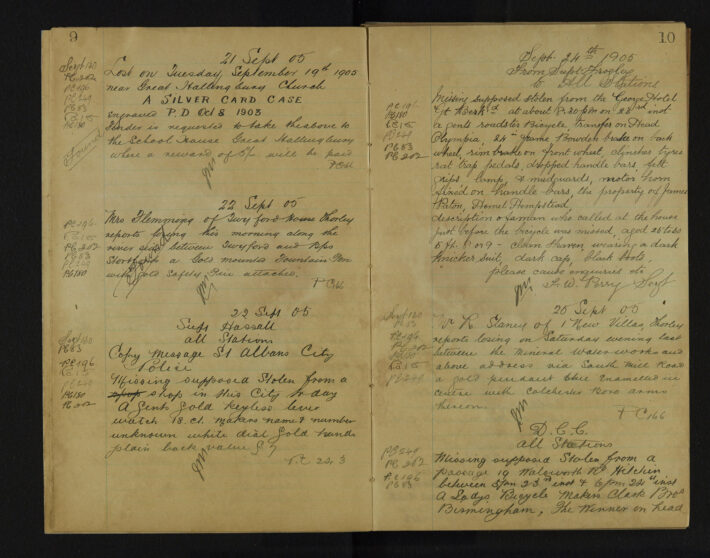 9
21 Sept 05
Lost on Tuesday, September 19th 1905
near Great Hallingbury Church
A SILVER CARD CASE
engraved P.D Oct 8 1903
Finder is requested to take the above to
the School House Great Hallingbury
where a reward of 5/- will be paid
Found
22 Sept 05
Mrs Flemming of Twyford House Thorley
reports losing this morning along the
river side between Twyford and Bps
Stortford a Gold mounted Fountain Pen
with Gold Safety Pin attached.
PC 166
22 Sept 05
Supt Hassall
All Stations
Copy Message St Albans City
Police
Missing supposed Stolen from a
shop in this City to day
A Gents Gold Keyless lever
watch 18.ct. makers name & number
unknown white dial Gold hands
plain back value £7
Sept 120
PC 83
PC 196
PC 249
PC 180
PC 202
10
Sept. 24th 1905
From Supt Frogley
to All Stations
Missing supposed stolen from the George Hotel
at about 8.30 pm on 23rd inst
a gents roadster Bicycle, transfer on Head
Olympia, 24in frame Bowden brake on back
wheel, rim brake on front wheel, clincher tyres
rat trap pedals, dropped handle bars, felt
grips lamp, & mudguards, motor horn
fixed on handle bars, the property of James
Hemel Hempstead,
description of a man who called at the house
just before the bicycle was missed, aged 25 to 26
5 ft. 8 or 9 - clean shaven, wearing a dark
Knicker suit, dark cap, black boots,
please cause enquiries etc
W. Perry Sergt
PC 196
PC 180
PC 249
PC 83
PC 202
25 Sept 05
of 1 New Villas, Thorley
reports losing on Saturday evening last
between the Mineral Water works and
above address via South Mill Road
a gold pendant blue Enamelled in
centre with Colchester Boro arms
thereon.
PC 166
D.C.C.
All Stations
Missing supposed Stolen from a
passage 19 Walsworth Rd Hitchin
between 8 pm 23rd inst & 6 pm 24th inst
A Ladys Bicycle Makers Clark Bros
Birmingham, The Winner on head
PC 249
PC 202
PC 196
PC 83